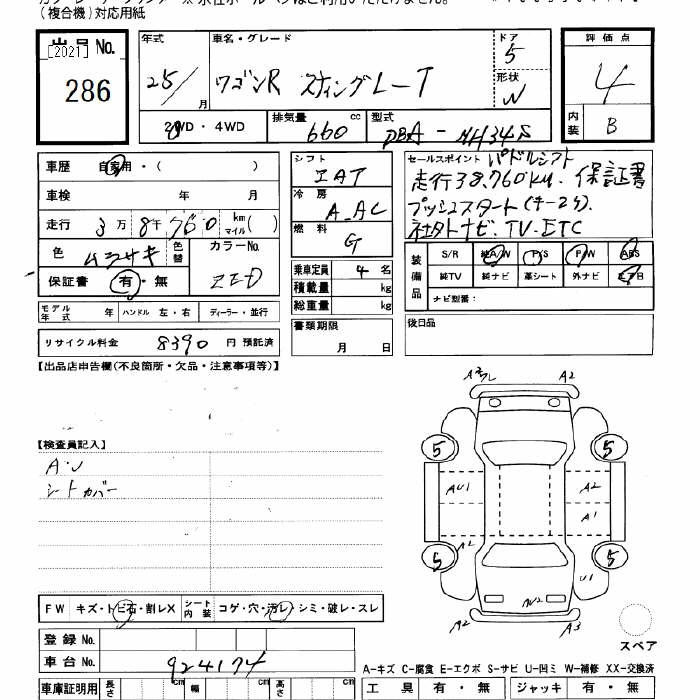 (複合機)対応用紙
出品No.
[2021]
286
年式 車名・グレード ドア
25/月 ワゴンR スティングレーT 5
形状
2WD・4WD 排気量 660 cc 型式 DBA-MH34S
評価点
4
内装 B
車歴 自家用・( )
車検 年 月
走行 3万 8千 760 km マイル( )
色 ムラサキ 色替 カラーNo.
保証書 有・無 ZED
モデル年式 年 ハンドル 左・右 ディーラー・並行
リサイクル料金 8390 円 預託済
シフト
IAT
冷房
A_AC
燃料
G
乗車定員 4 名
積載量 kg
総重量 kg
書類期限
月 日
セールスポイント パドルシフト
走行38,760km. 保証書
プッシュスタート(キー2ケ).
社外ナビ.TV.ETC
装備品 S/R 純A/W P/S P/W ABS
純TV 純ナビ 革シート 外ナビ エアB
ナビ型番:
後日品
【出品店申告欄(不良箇所・欠品・注意事項等)】
【検査員記入】
A・U
シートカバー
A2 A2
5 5
AU1 A2
A1
A2
5 5
U1
A2 A3
スペア
FW キズ・トビ石・割レX シート内装 コゲ・穴・汚レ・シミ・破レ・スレ
登録No.
車台No. 924174
車庫証明用 長さ cm 幅 cm 高さ cm
A-キズ C-腐食 E-エクボ S-サビ U-凹ミ W-補修 XX-交換済
工具 有・無 ジャッキ 有・無